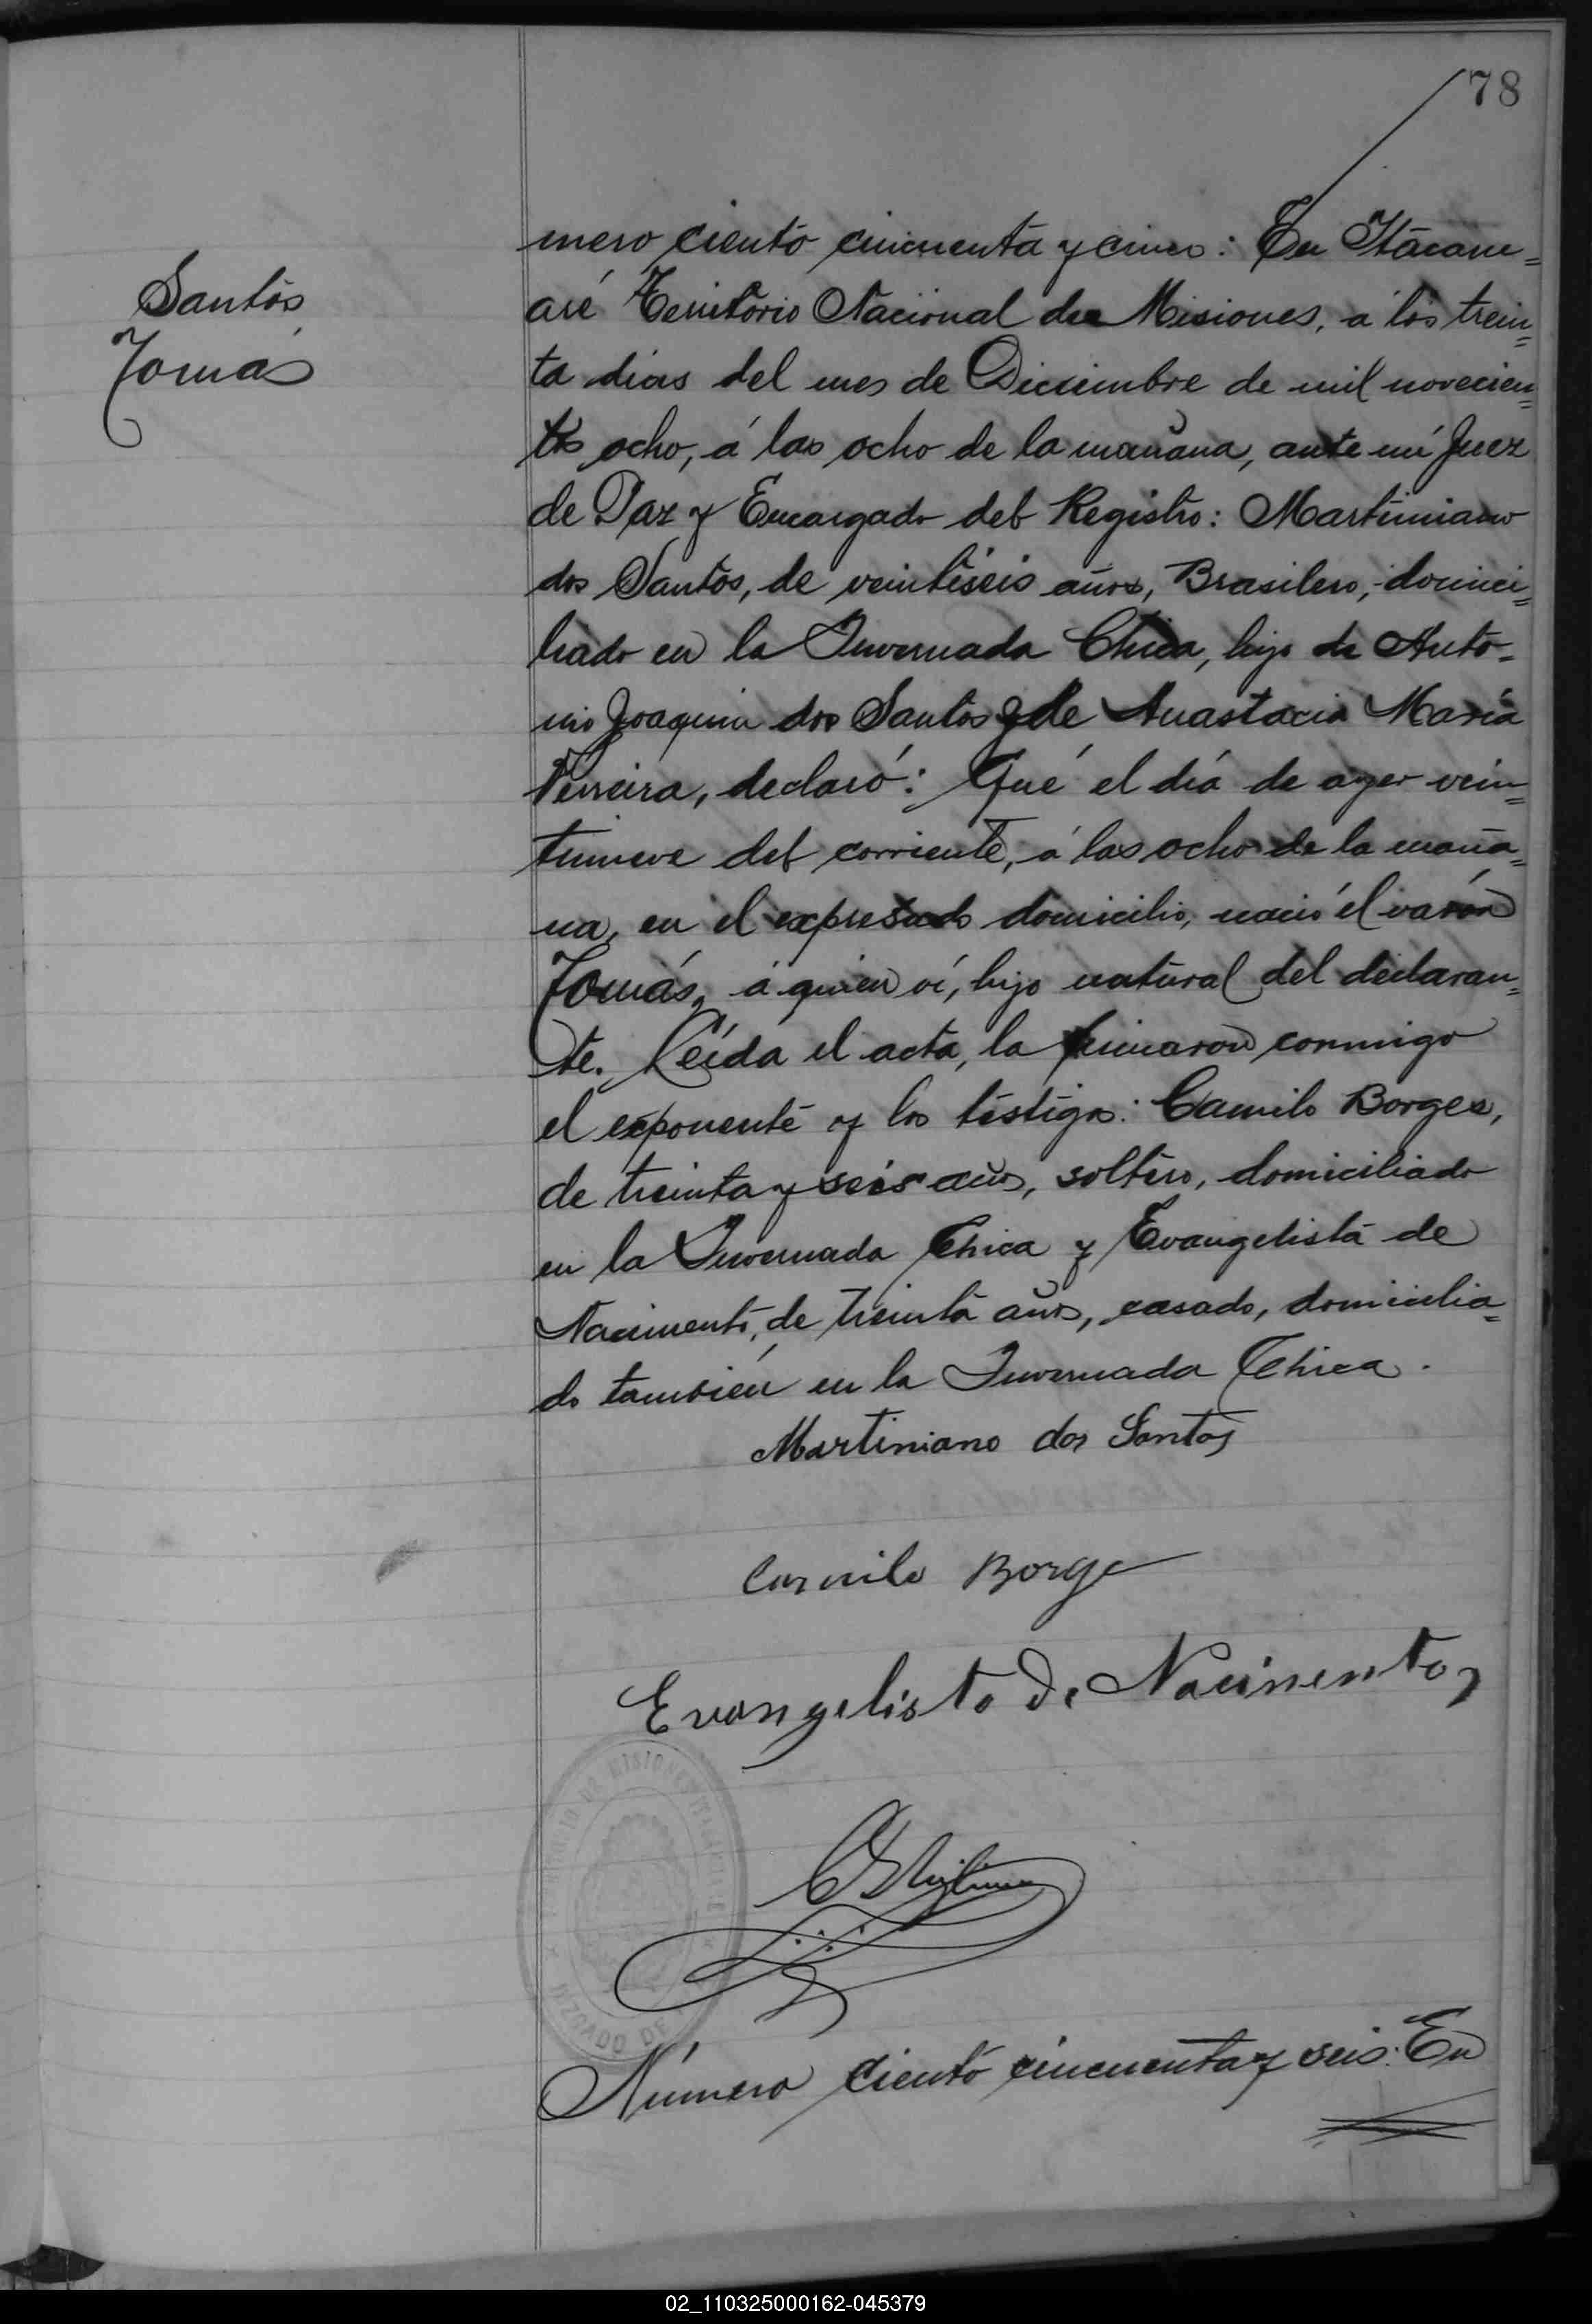 78
Santos
Tomás
mero ciento cincuenta y cinco: En Itacaru=
aré Territorio Nacional de Misiones, á los trein=
ta dias del mes de Diciembre de mil novecien=
tos ocho, á las ocho de la mañana, ante mí Juez
de Paz y Encargado del Registro: Martiniano
dos Santos, de veintiséis años, Brasilero, domici=
liado en la Invernada Chica, hijo de Anto-
nio Joaquin dos Santos y de Anastacia María
Ferreira, declaró: Qué el día de ayer vein=
tinueve del corriente, á las ocho de la maña=
na, en el expresado domicilio, nació el varón
Tomás, á quien ví, hijo natural del declaran=
te. Leída el acta, la firmaron conmigo
el exponente y los testigos: Camilo Borges,
de treinta y seis años, soltero, domiciliado
en la Invernada Chica y Evangelista de
Nacimento, de treinta años, casado, domicilia=
do también en la Invernada Chica.
Martiniano dos Santos
Camilo Borge
Evangelisto de Nacimento
Número ciento cincuenta y seis: En
02_110325000162-045379